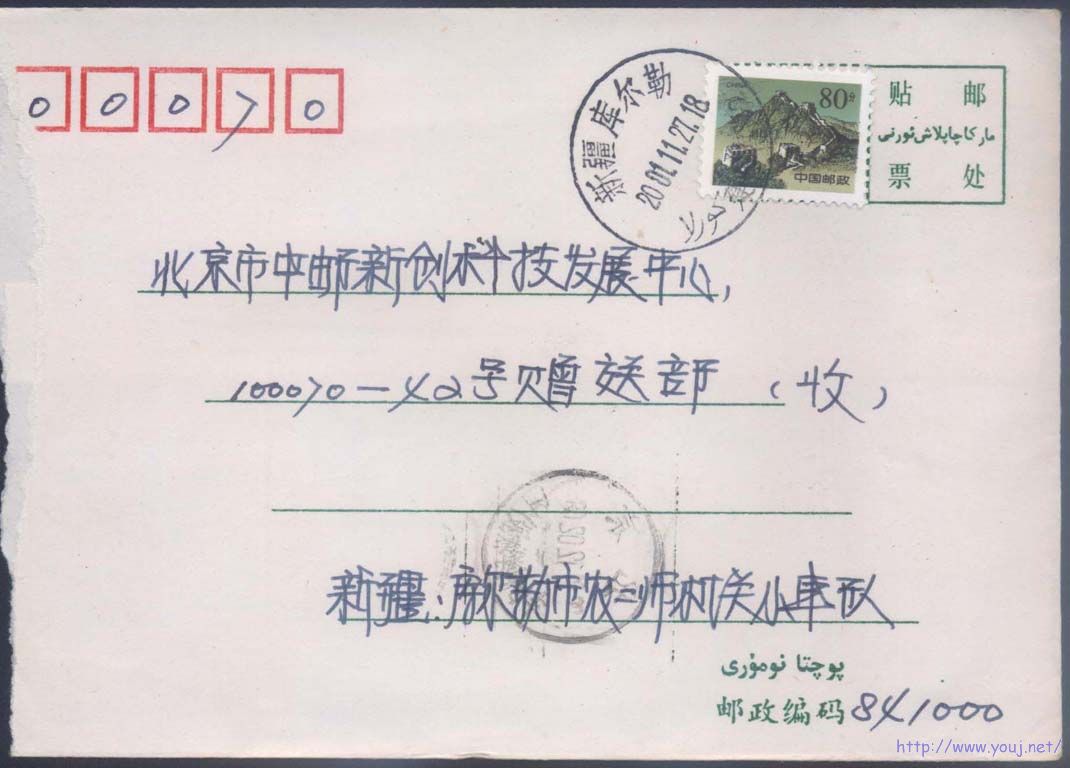 0 0 0 7 0
新疆库尔勒
2001.11.27.18
80分
中国邮政
贴 邮
ماركا چاپلاش ئورنى
票 处
北京市中邮新创科技发展中心,
100070-42号赠送部(收)
新疆:库尔勒市农二师机关小车队
پوچتا نومۇرى
邮政编码 841000
http://www.youj.net/